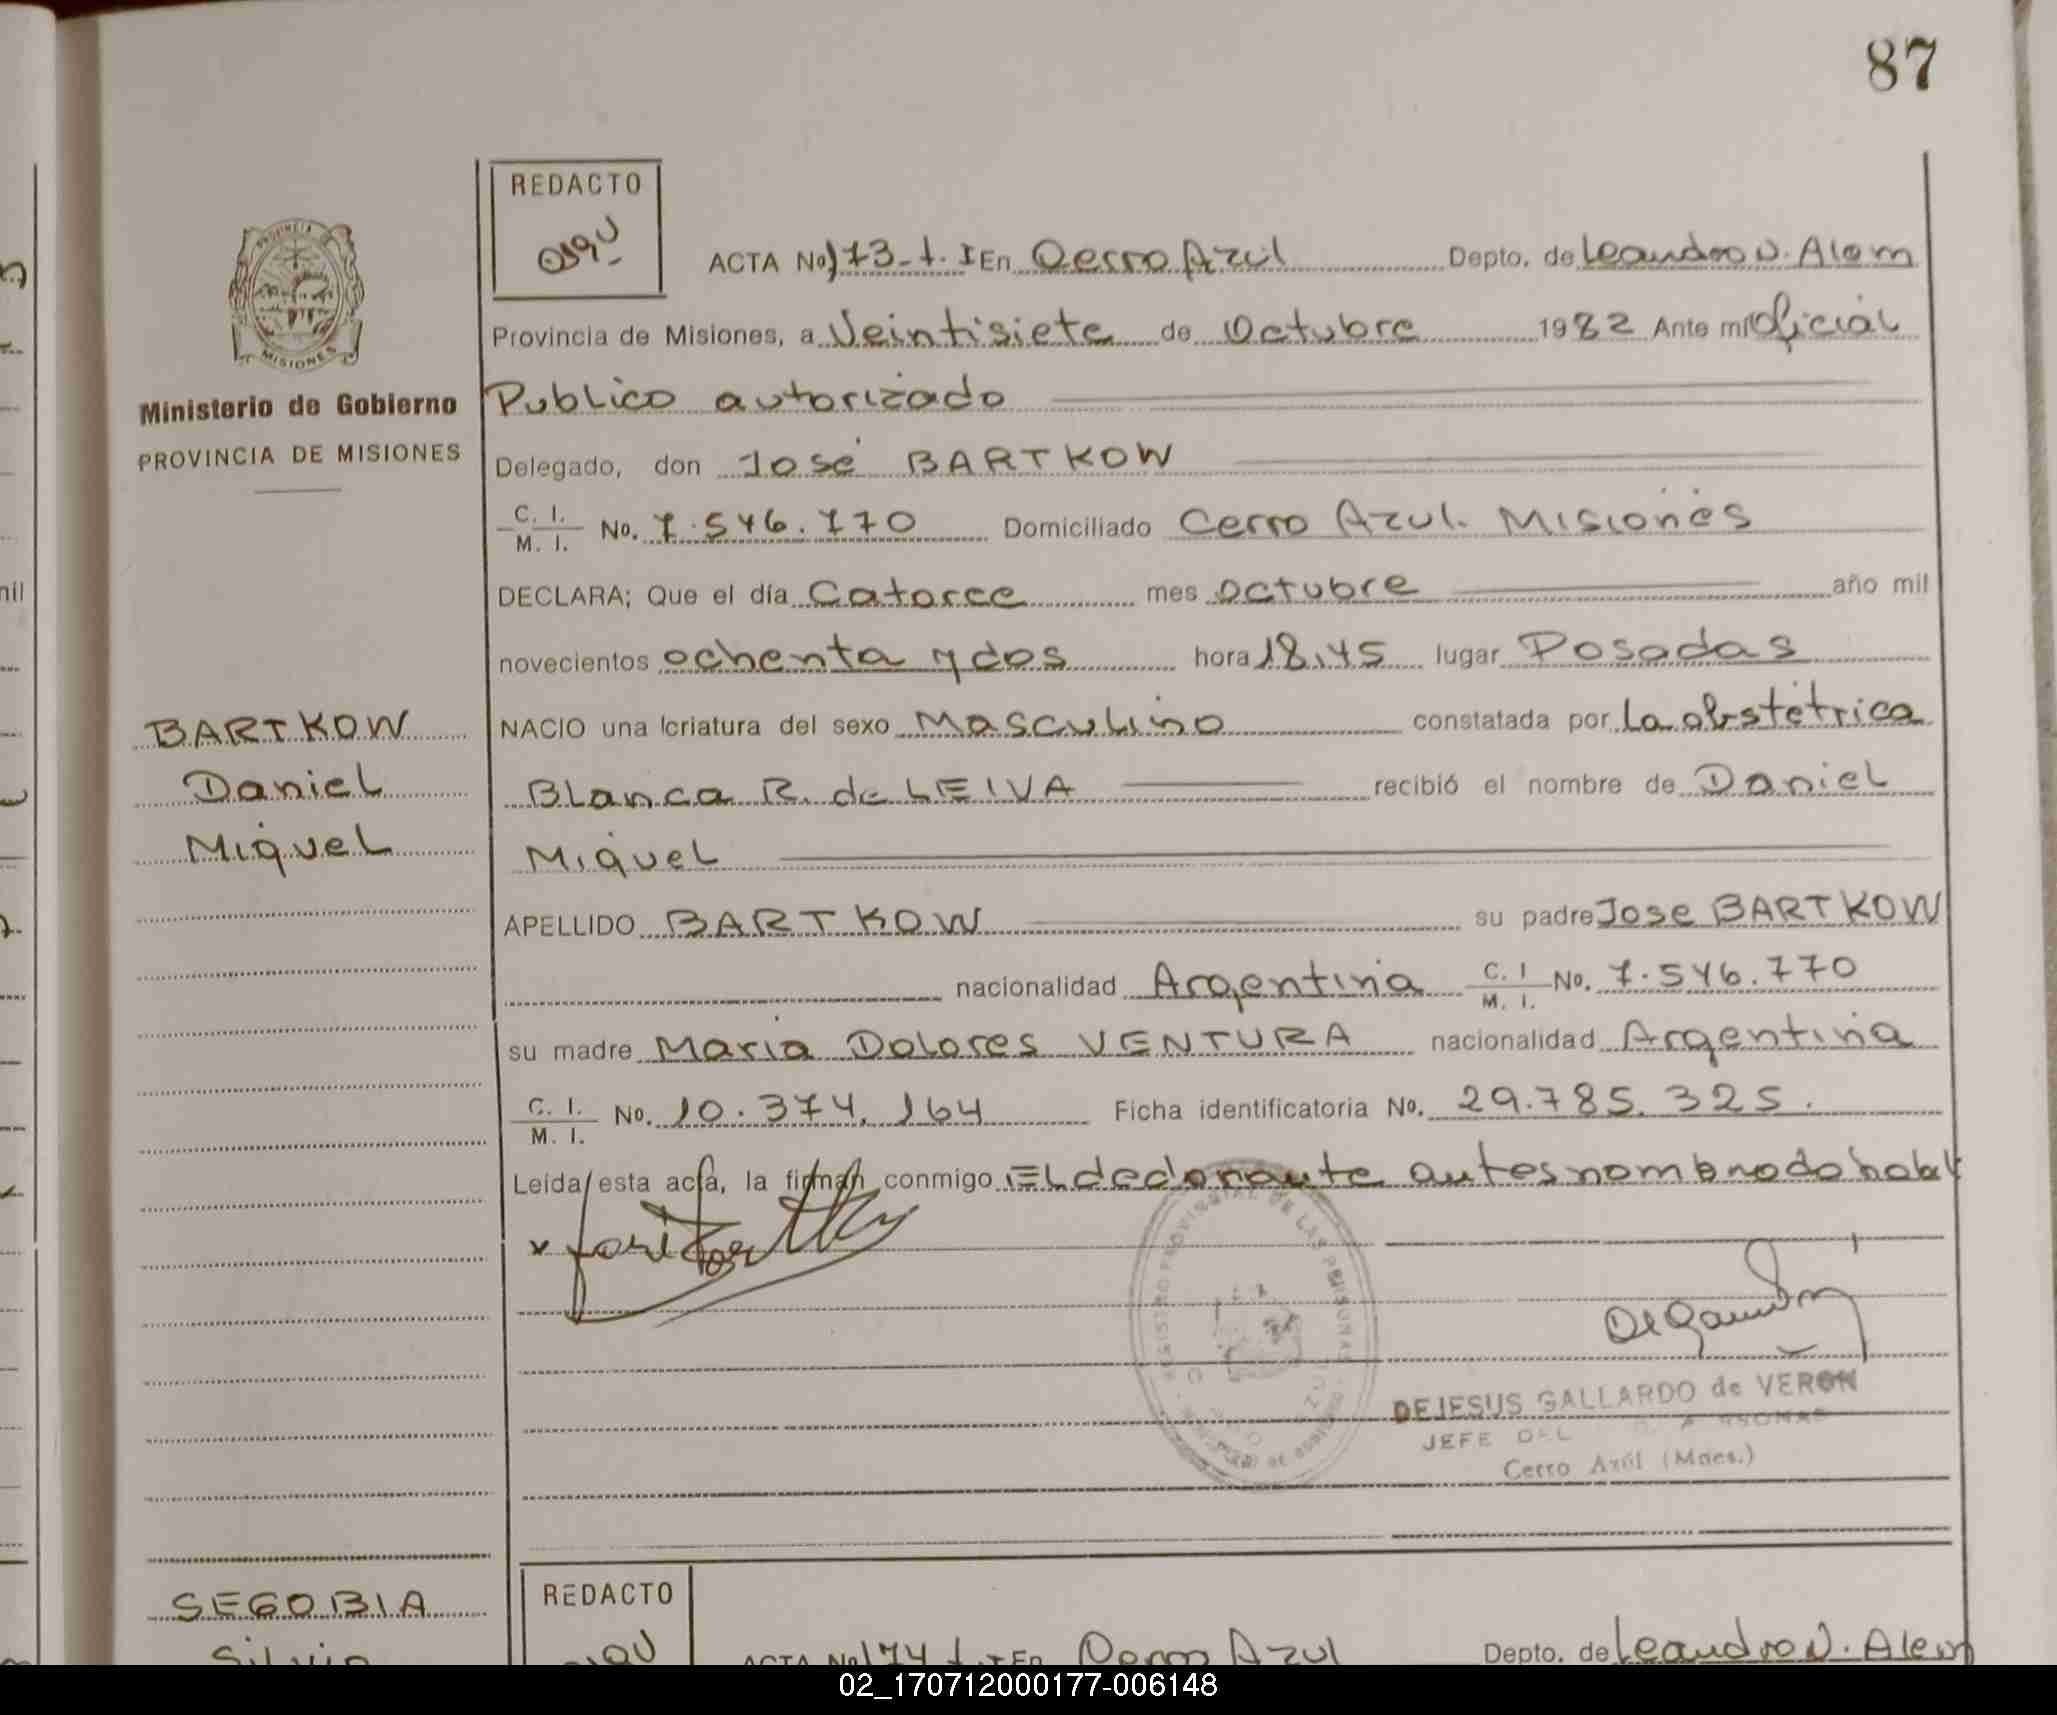 87
REDACTO
ACTA No 173-t. I En Cerro Azul Depto. de Leandro N. Alem
Provincia de Misiones, a Veintisiete de Octubre 1982 Ante mi Oficial
Ministerio de Gobierno
Publico autorizado
PROVINCIA DE MISIONES
Delegado, don José BARTKOW
C. I.
M. I. No. 7.546.770 Domiciliado Cerro Azul. Misiones
DECLARA; Que el día Catorce mes octubre año mil
novecientos ochenta y dos hora 18,45 lugar Posadas
BARTKOW
Daniel
Miguel
NACIO una criatura del sexo Masculino constatada por La obstétrica
Blanca R. de LEIVA recibió el nombre de Daniel
Miguel
APELLIDO BARTKOW su padre Jose BARTKOW
nacionalidad Argentina C. I M. I. No. 7.546.770
su madre Maria Dolores VENTURA nacionalidad Argentina
C. I.
M. I. No. 10.374.164 Ficha identificatoria No. 29.785.325.
Leída esta acta, la firman conmigo El declarante antes nombrado
MISIONES
DEJESUS GALLARDO de VERON
JEFE DEL
Cerro Azul (Mnes.)
SEGOBIA
Silvio
REDACTO
ACTA No 174 t. I En Cerro Azul Depto. de Leandro N. Alem
02_170712000177-006148